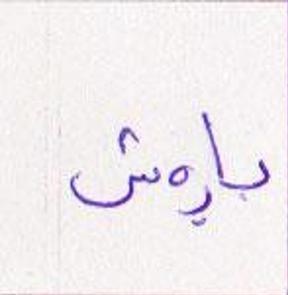 بارەش